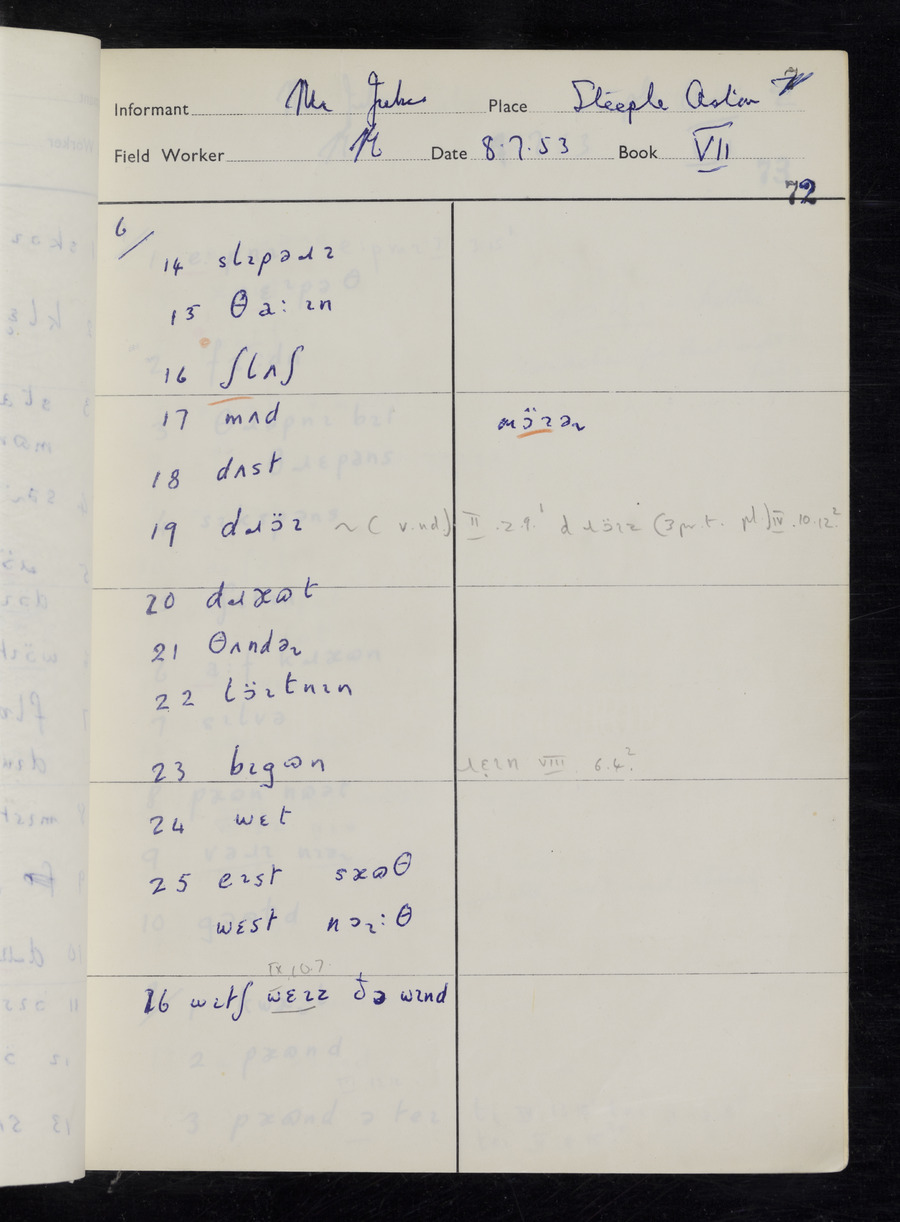 Informant Mr Place Steeple Aston
Field Worker Date 8.7.53 Book VII
72
6/
14 slɪpəɹɪ
15 θə:ɪn
16 ʃlʌʃ
17 mʌd
18 dʌst
19 dɹɔ̈ɪ ~ (v.nd) II .2.9.¹ dɹɔ̈ɪɪ (3 pr.t. pl) IV .10.12.²
20 dɹæɷt
21 θʌndəɽ
22 lɔ̈ɪtnɪn
23 bɪgɷn VIII 6.4.²
24 wɛt
25 eɪst sæɷθ
wɛst nɔɽ:θ
IX.10.7
26 wɪtʃ wɛɪz ðə wɪnd